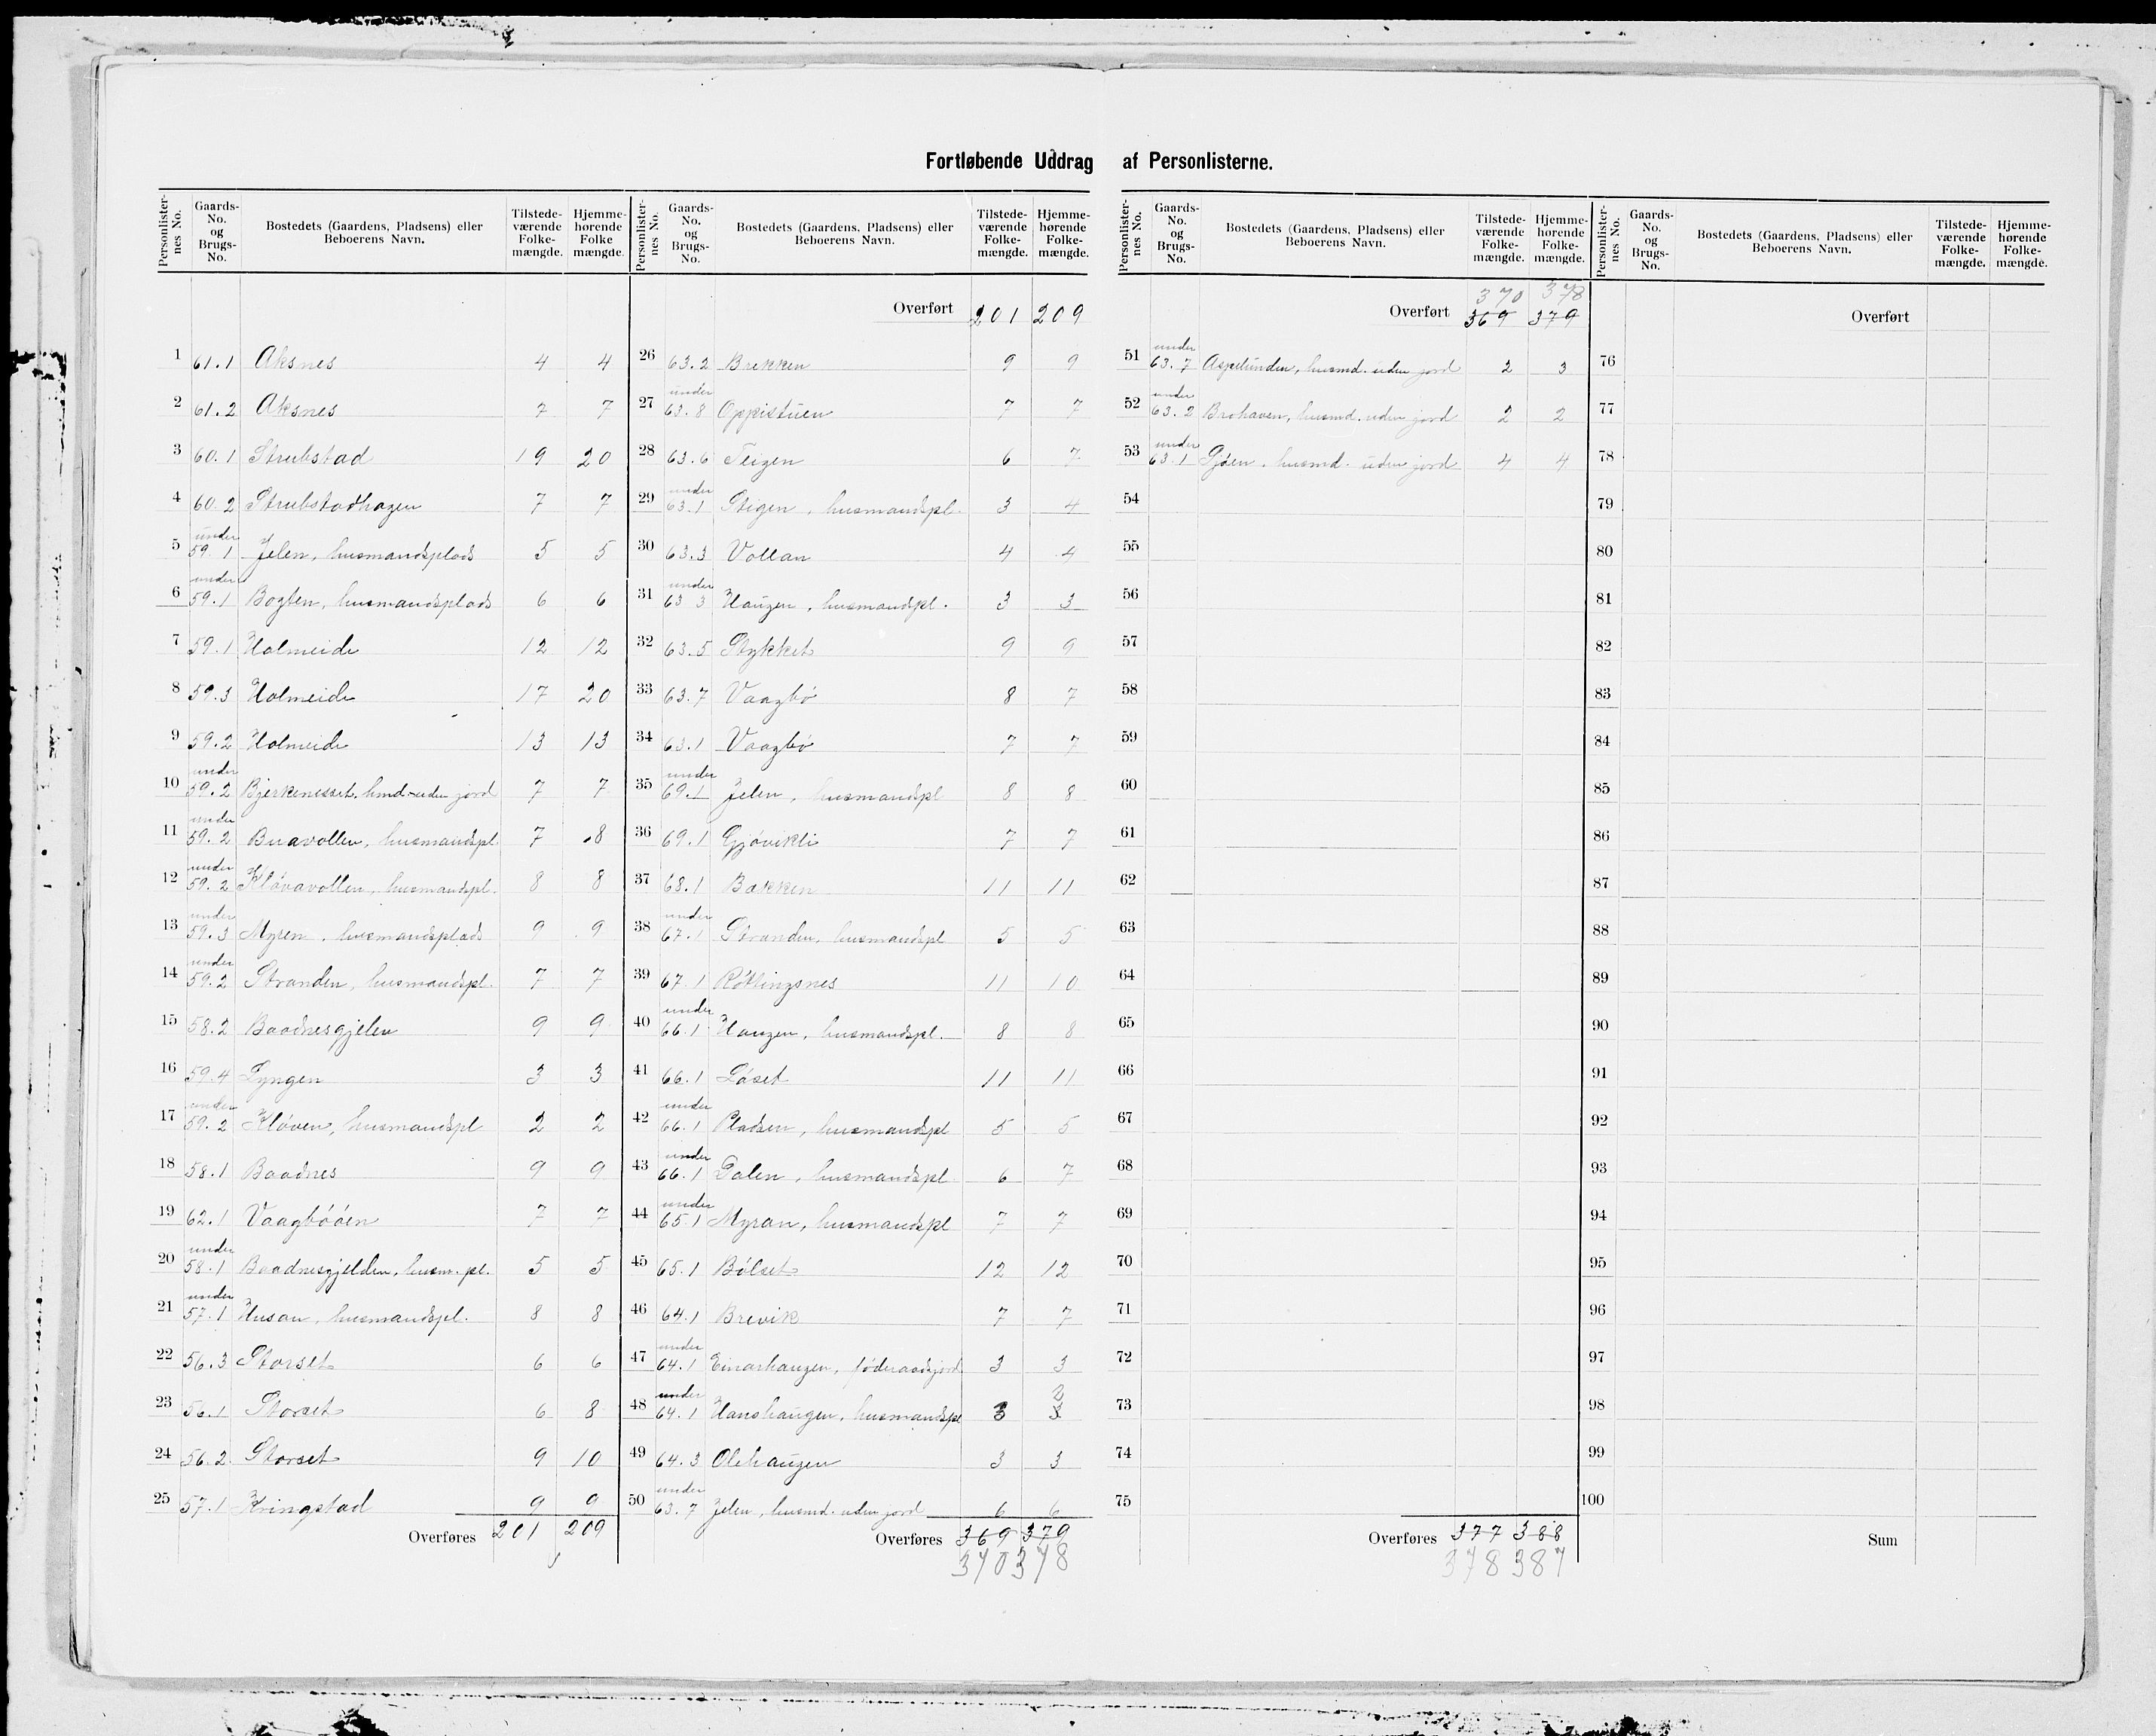 Fortløbende Uddrag af Personlisterne.
Personlisternes No. | Gaards-No. og Brugs-No. | Bostedets (Gaardens, Pladsens) eller Beboerens Navn. | Tilstedeværende Folkemængde. | Hjemmehørende Folkemængde.
1 61.1 Aksnes 4 4
2 61.2 Aksnes 7 7
3 60.1 Strubstad 19 20
4 60.2 Strubstadhagen 7 7
5 under 59.1 Jelen, husmandsplads 5 5
6 under 59.1 Bogten, husmandsplads 6 6
7 59.1 Holmeide 12 12
8 59.3 Holmeide 17 20
9 59.2 Holmeide 13 13
10 under 59.2 Bjerkenesset. hmd uden jord 7 7
11 under 59.2 Buavollen, husmandspl 7 8
12 under 59.2 Kløvavollen, husmandspl. 8 8
13 under 59.3 Myren, husmandsplads 9 9
14 under 59.2 Stranden, husmandspl. 7 7
15 58.2 Baadnesgjelen 9 9
16 59.4 Lyngen 3 3
17 under 59.2 Kløven, husmandspl 2 2
18 58.1 Baadnes 9 9
19 62.1 Vaagbøøen 7 7
20 under 58.1 Baadnesgjelden, husm. pl. 5 5
21 under 57.1 Husan, husmandspl. 8 8
22 56.3 Storset 6 6
23 56.1 Storset 6 8
24 56.2 Storset 9 10
25 57.1 Kringstad 9 9
Overføres 201 209
Personlisternes No. | Gaards-No. og Brugs-No. | Bostedets (Gaardens, Pladsens) eller Beboerens Navn. | Tilstedeværende Folkemængde. | Hjemmehørende Folkemængde.
Overført 201 209
26 63.2 Brekken 9 9
27 under 63.8 Oppistuen 7 7
28 63.6 Teigen 6 7
29 under 63.1 Stigen, husmandspl. 3 4
30 63.3 Vollan 4 4
31 under 63.3 Haugen, husmandspl. 3 3
32 63.5 Stykket 9 9
33 63.7 Vaagbø 8 7
34 63.1 Vaagbø 7 7
35 under 69.1 Jelen, husmandspl 8 8
36 69.1 Gjøvikli 7 7
37 68.1 Bakken 11 11
38 under 67.1 Stranden, husmandspl 5 5
39 67.1 Røttingsnes 11 10
40 under 66.1 Haugen, husmandspl. 8 8
41 66.1 Løset 11 11
42 under 66.1 Pladsen, husmandspl 5 5
43 under 66.1 Dalen, husmandspl. 6 7
44 under 65.1 Myran, husmandspl 7 7
45 65.1 Bølset 12 12
46 64.1 Brevik 7 7
47 under 64.1 Einarhaugen, føderaadsjord 3 3
48 under 64.1 Hanshaugen, husmandspl 3 3 2
49 64.3 Olehaugen 3 3
50 under 63.7 Jelen, husmd. uden jord 6 6
Overføres 369 379
370 378
Personlisternes No. | Gaards-No. og Brugs-No. | Bostedets (Gaardens, Pladsens) eller Beboerens Navn. | Tilstedeværende Folkemængde. | Hjemmehørende Folkemængde.
370 378
Overført 369 379
51 under 63.7 Aspelunden, husmd. uden jord 2 3
52 under 63.2 Brohaven, husmd. uden jord 2 2
53 under 63.1 Gjøen, husmd. uden jord 4 4
54
55
56
57
58
59
60
61
62
63
64
65
66
67
68
69
70
71
72
73
74
75
Overføres 377 388
378 387
Personlisternes No. | Gaards-No. og Brugs-No. | Bostedets (Gaardens, Pladsens) eller Beboerens Navn. | Tilstedeværende Folkemængde. | Hjemmehørende Folkemængde.
Overført
76
77
78
79
80
81
82
83
84
85
86
87
88
89
90
91
92
93
94
95
96
97
98
99
100
Sum